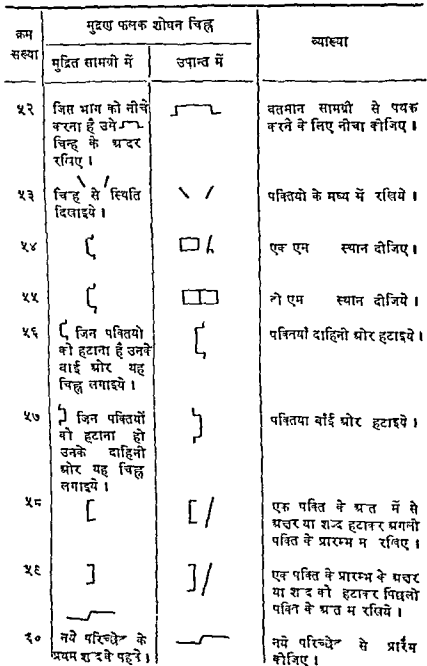 क्रम संख्या
मुद्रण फलक शोधन चिह्न
व्याख्या
मुद्रित सामग्री में
उपान्त में
५२
जिस भाग को नीचे
करना है उसे
चिन्ह के अदर
रखिए।
वतमान सामग्री से पथक
करने के लिए नीचा कीजिए।
५३
चिह्न से स्थिति
दिखाइये।
पक्तियो के मध्य में रखिये।
५४
एक एम स्थान दीजिए।
५५
दो एम स्थान दीजिये।
५६
जिन पक्तियो
को हटाना है उनके
बाई ओर यह
चिह्न लगाइये।
पक्तियाँ दाहिनी ओर हटाइये।
५७
जिन पक्तियों
को हटाना हो
उनके दाहिनी
ओर यह चिह्न
लगाइये।
पक्तिया बाँई ओर हटाइये।
५८
एक पक्ति के अत में से
अक्षर या शब्द हटाकर अगली
पक्ति के प्रारम्भ म रखिए।
५९
एक पक्ति के प्रारम्भ के अक्षर
या शब्द को हटाकर पिछली
पक्ति के अत म रखिये।
६०
नये परिच्छेद के
प्रथम शब्द के पहले।
नये परिच्छेद से प्रारंभ
कीजिए।